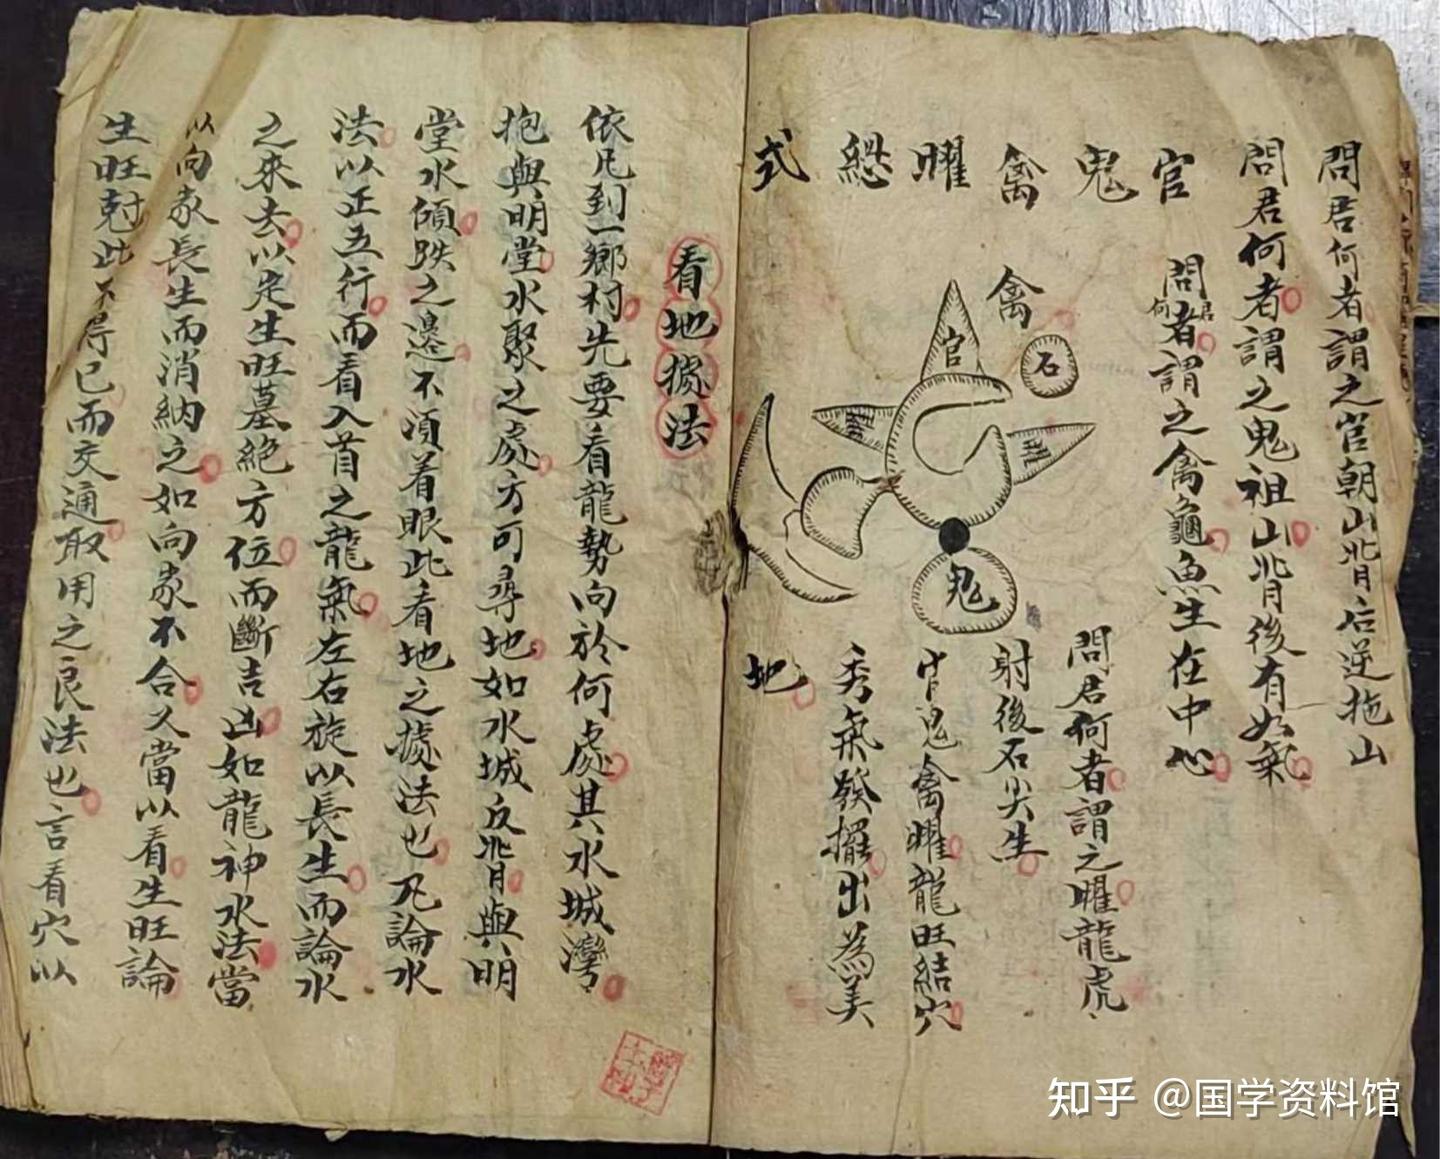 問君何者謂之官朝山背后逆拖山
問君何者謂之鬼祖山背後有如氣
官鬼禽曜総式
問君何者謂之禽龜魚生在中心
問君何者謂之曜龍虎
射後石尖生
官鬼禽曜龍旺結穴
秀氣發擺出為美
地
禽
官
石
曜
曜
鬼
看地㨿法
依凡到一鄉村先要看龍勢向於何處其水城灣
抱與明堂水聚之處方可尋地如水城反背與明
堂水傾跌之邊不須着眼此看地之㨿法也凡論水
法以正五行而看入首之龍氣左右旋以長生而論水
之來去以定生旺墓絕方位而斷吉凶如龍神水法當
以向家長生而消納之如向家不合又當以看生旺論
生旺尅此不得已而交通取用之良法也言看穴以
知乎 @国学资料馆